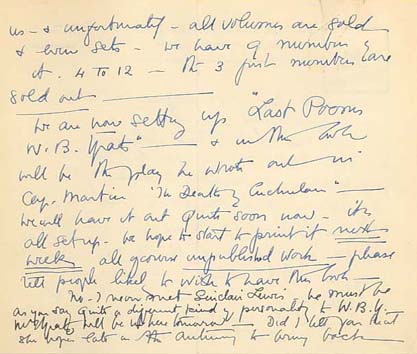 us - & unfortunately - all volumes are sold
& even sets - we have 9 numbers of
it. 4 to 12 - the 3 first numbers are
sold out
We are now setting up "Last Poems
W. B. Yeats" - & in this book
will be the play he wrote out in
Cap. Martin "The Death of Cuchulain" -
we will have it out quite soon now - it's
all set up. we hope to start to print it next
week all of course unpublished work - please
tell people likely to wish to have this book -
No - I never met Sinclair Lewis - he must be
as you say quite a different kind of personality to W.B.Y.
Mrs Yeats will be here tomorrow - Did I tell you that
she hopes late in the autumn to bring back